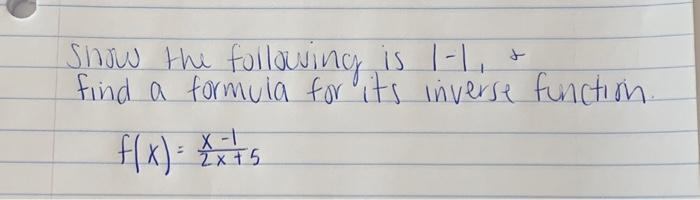 Show the following is 1-1, &
find a formula for its inverse function.
f(x) = \frac{x-1}{2x+5}